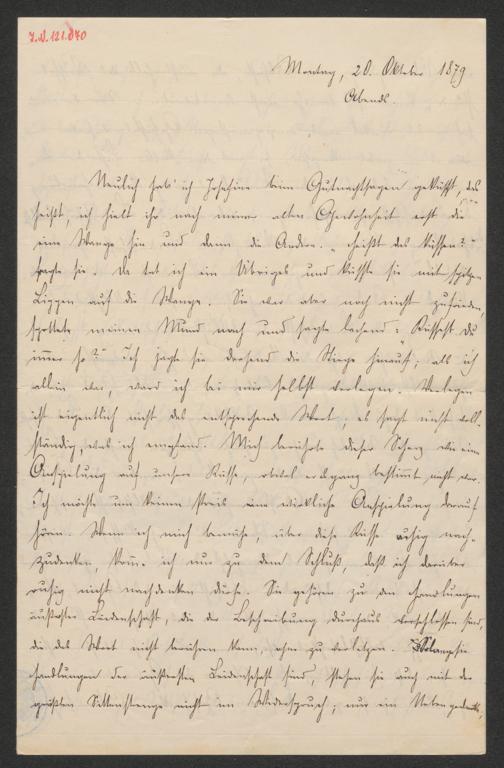 J.N. 121.070
Montag, 20. Oktober 1879
Abends.
Neulich hab' ich Josephine beim Gutnachtsagen geküsst, das
heißt, ich hielt ihr nach meiner alten Gewohnheit erst die
eine Wange hin und dann die Andere. „Heißt das küssen?"
fragte sie. Da tat ich ein Übriges und küsste sie mit spitzen
Lippen auf die Wange. Sie war aber noch nicht zufrieden,
spottete meinen Mund nach und sagte lachend: „Küssest du
immer so?" Ich jagte sie drohend die Stiege hinauf; als ich
allein war, ward ich bei mir selbst verlegen. Verlegen
ist eigentlich nicht das entsprechende Wort, es sagt nicht voll-
ständig, was ich empfand. Mich berührte dieser Scherz wie eine
Anspielung auf unsere Küsse, obwol es ganz bestimmt nicht war.
Ich möchte um keinen Preis eine wirkliche Anspielung darauf
hören. Wenn ich mich bemühe, über diese Küsse ruhig nach-
zudenken, komme ich nur zu dem Schluß, daß ich darüber
ruhig nicht nachdenken dürfe. Sie gehören zu den Handlungen
äußerster Leidenschaft, die der Beschreibung durchaus verschlossen sind,
die das Wort nicht berühren kann, ohne zu verletzen. Solange sie
Handlungen der äußersten Leidenschaft sind, stehen sie auch mit der
größten Sittenstrenge nicht im Widerspruch; nur ein